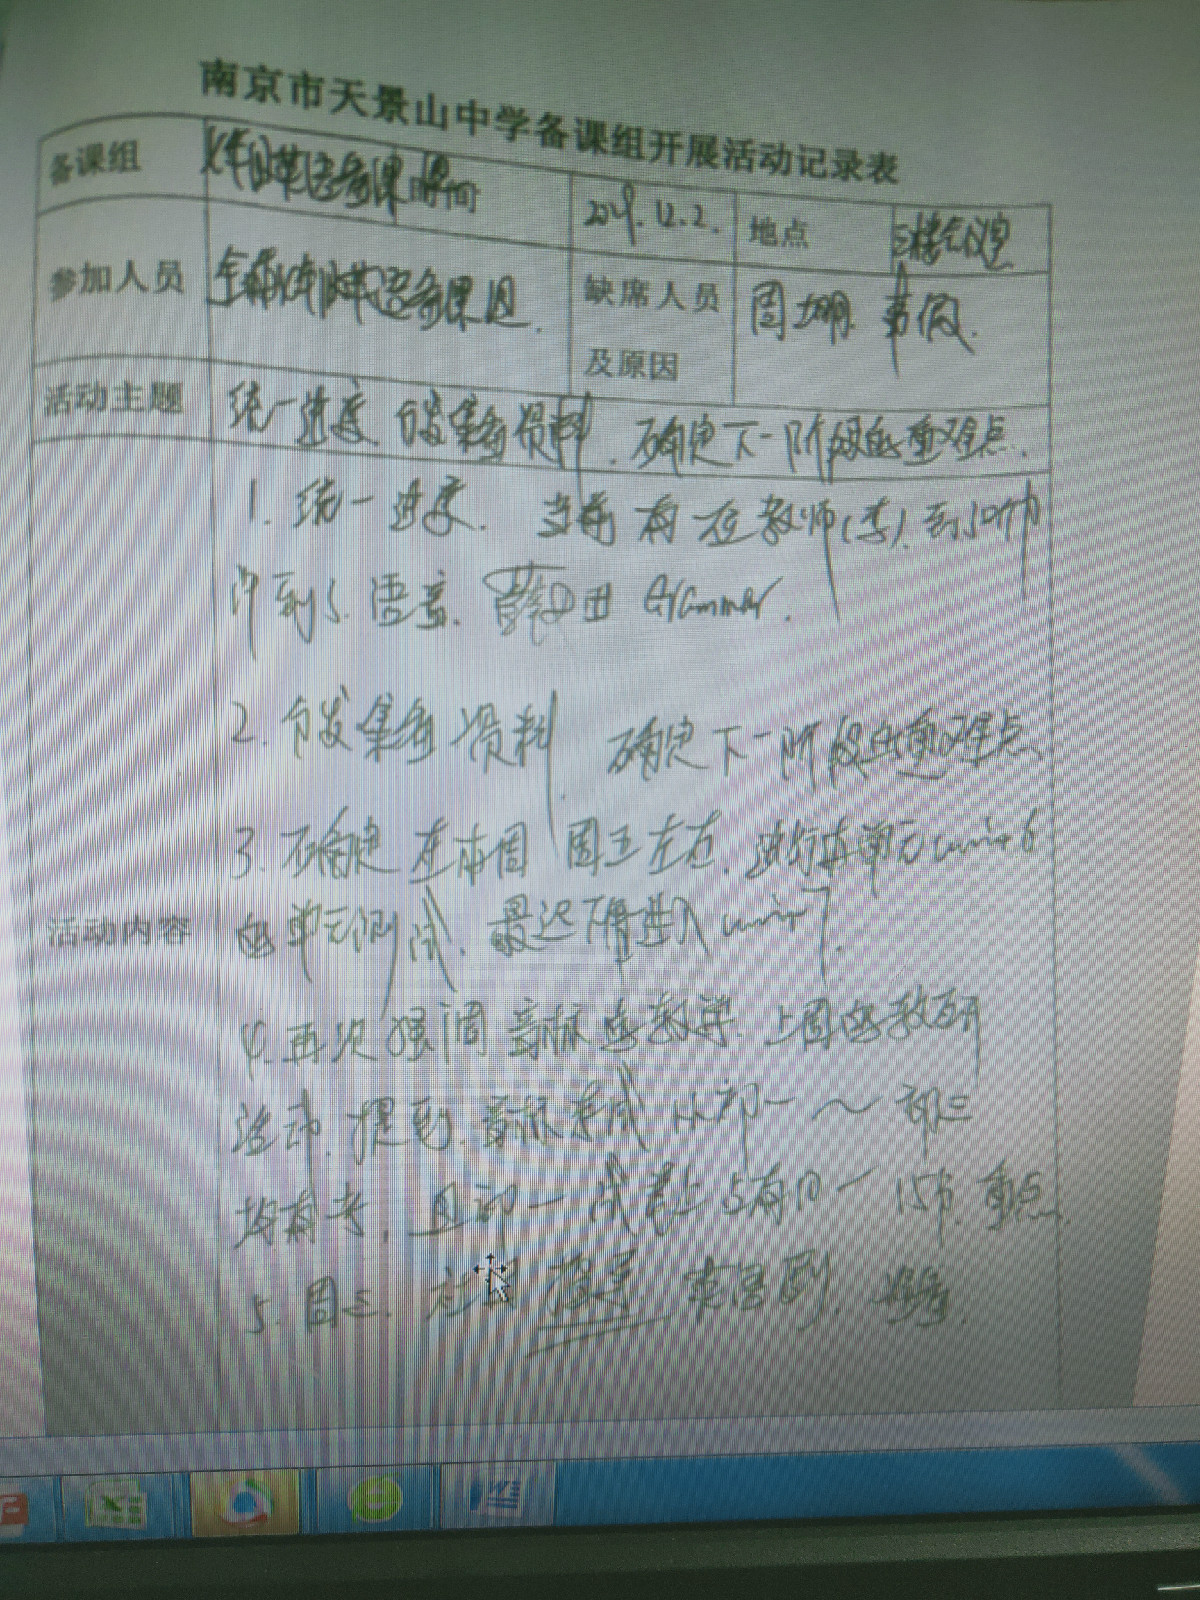 南京市天景山中学备课组开展活动记录表
备课组 七年级英语备课 时间 2019.12.2. 地点 三楼会议室
参加人员 全体七年级英语备课组. 缺席人员 周 事假.
及原因
活动主题 统一进度 分发集备资料. 确定下一阶段的重难点.
1. 统一进度. 当前 有 教师(李).
到 Grammar.
2. 分发集备资料 确定下一阶段的重难点
3. 确定在本周 周五左右. 进行本单元unit 6
活动内容 的单元测试. 最迟 进入 unit 7.
4. 再次强调音标的教学. 上周的教研
活动. 提到. 音标 从初一 ~ 初三
均有考, 且初一试卷上占有10一15分. 重点.
5. 周三.